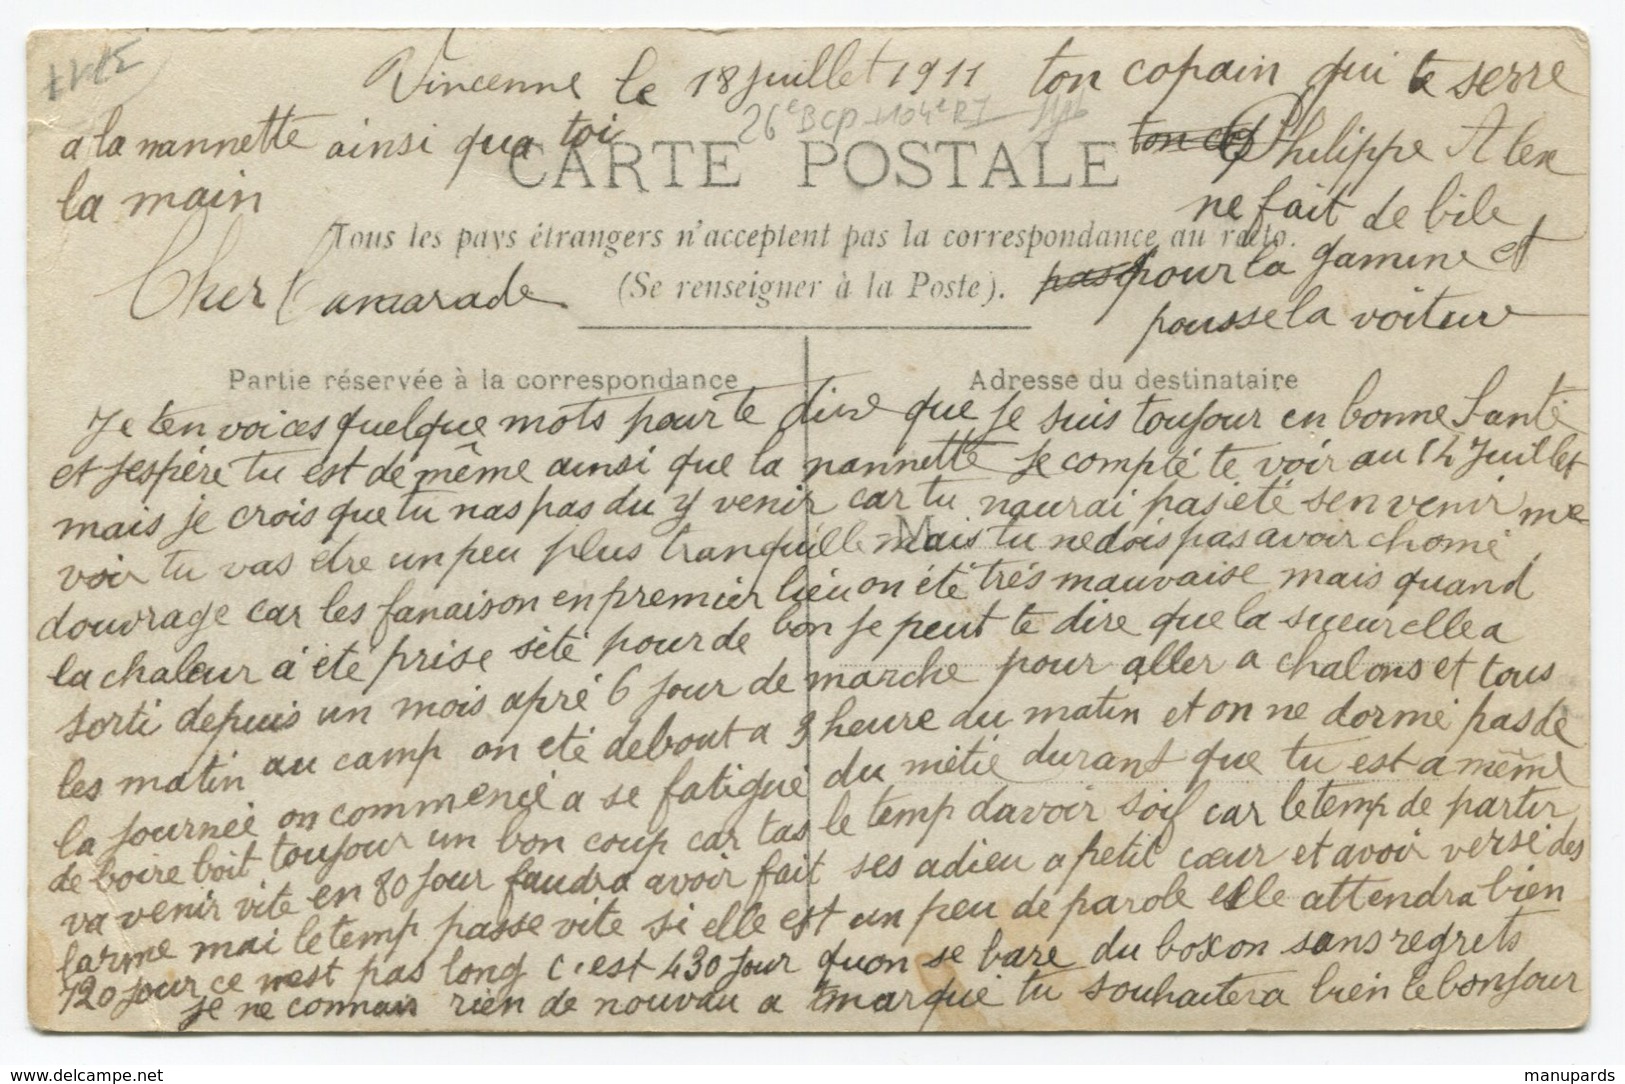 Vincenne le 18 juillet 1911
26e BCP 104e RI
CARTE POSTALE
Tous les pays étrangers n'acceptent pas la correspondance au recto.
(Se renseigner à la Poste).
Cher Camarade
Partie réservée à la correspondance
Adresse du destinataire
M
Je ten voi ces quelque mots pour te dire que je suis toujour en bonne Santé
et jespère tu est de même ainsi que la nannette je compté te voir au 14 Juillet
mais je crois que tu nas pas du y venir car tu naurai pas été sen venir me
voir tu vas etre un peu plus tranquille mais tu ne dois pas avoir chomé
douvrage car les fanaison en premier lieu on été trés mauvaise mais quand
la chaleur a été prise sété pour de bon je peut te dire que la sueur elle a
sorti depuis un mois apré 6 jour de marche pour aller a chalons et tous
les matin au camp on été debout a 3 heure du matin et on ne dormé pas de
la journée on commencé a se fatigué du métié durant que tu est a même
de boire boit toujour un bon coup car tas le temp davoir soif car le temp de partir
va venir vite en 80 jour faudra avoir fait ses adieu a petit cœur et avoir versé des
larme mai le temp passe vite si elle est un peu de parole elle attendra bien
720 jour ce nest pas long c'est 430 jour quon se bare du boxon sans regrets
je ne connais rien de nouvau a marqué tu souhaitera bien le bonjour
a la nannette ainsi qua toi
la main
ton copain qui te serre
ton Philippe Alex
ne fait de bile
pas pour la gamine et
pousse la voiture
manupards
www.delcampe.net